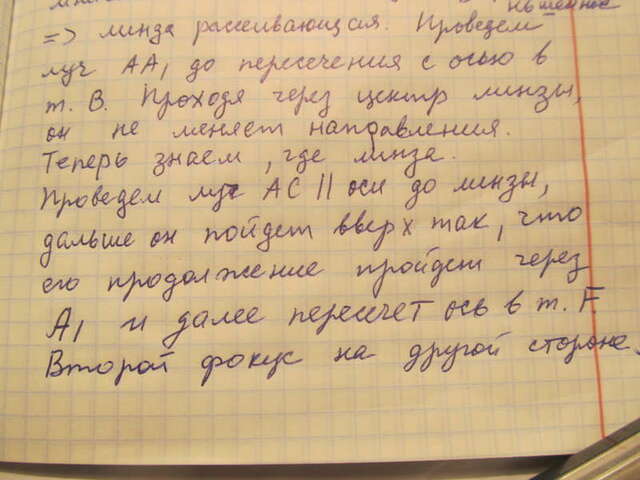 => линза рассеивающая. Проведем
луч AA₁ до пересечения с осью в
т. В. Проходя через центр линзы,
он не меняет направления.
Теперь знаем, где линза.
Проведем луч AC || оси до линзы,
дальше он пойдет вверх так, что
его продолжение пройдет через
A₁ и далее пересечет ось в т. F.
Второй фокус на другой стороне.